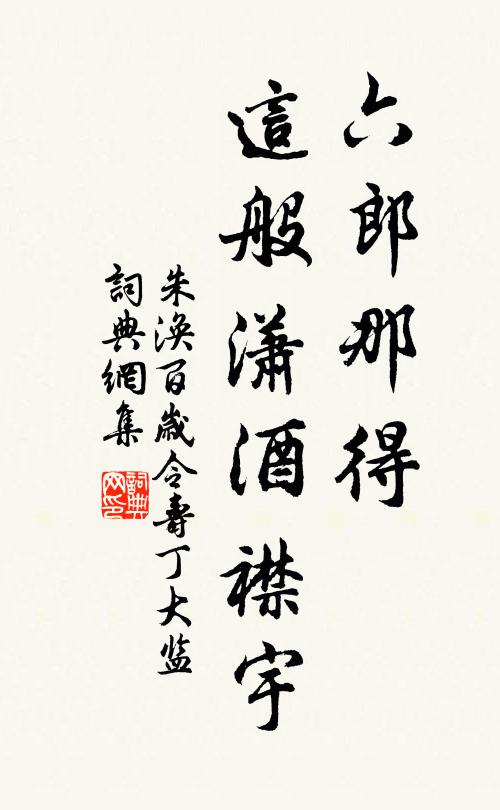 六郎那得
這般瀟酒襟宇
朱渙百歲令壽丁大监
詞典網集
詞典
网印